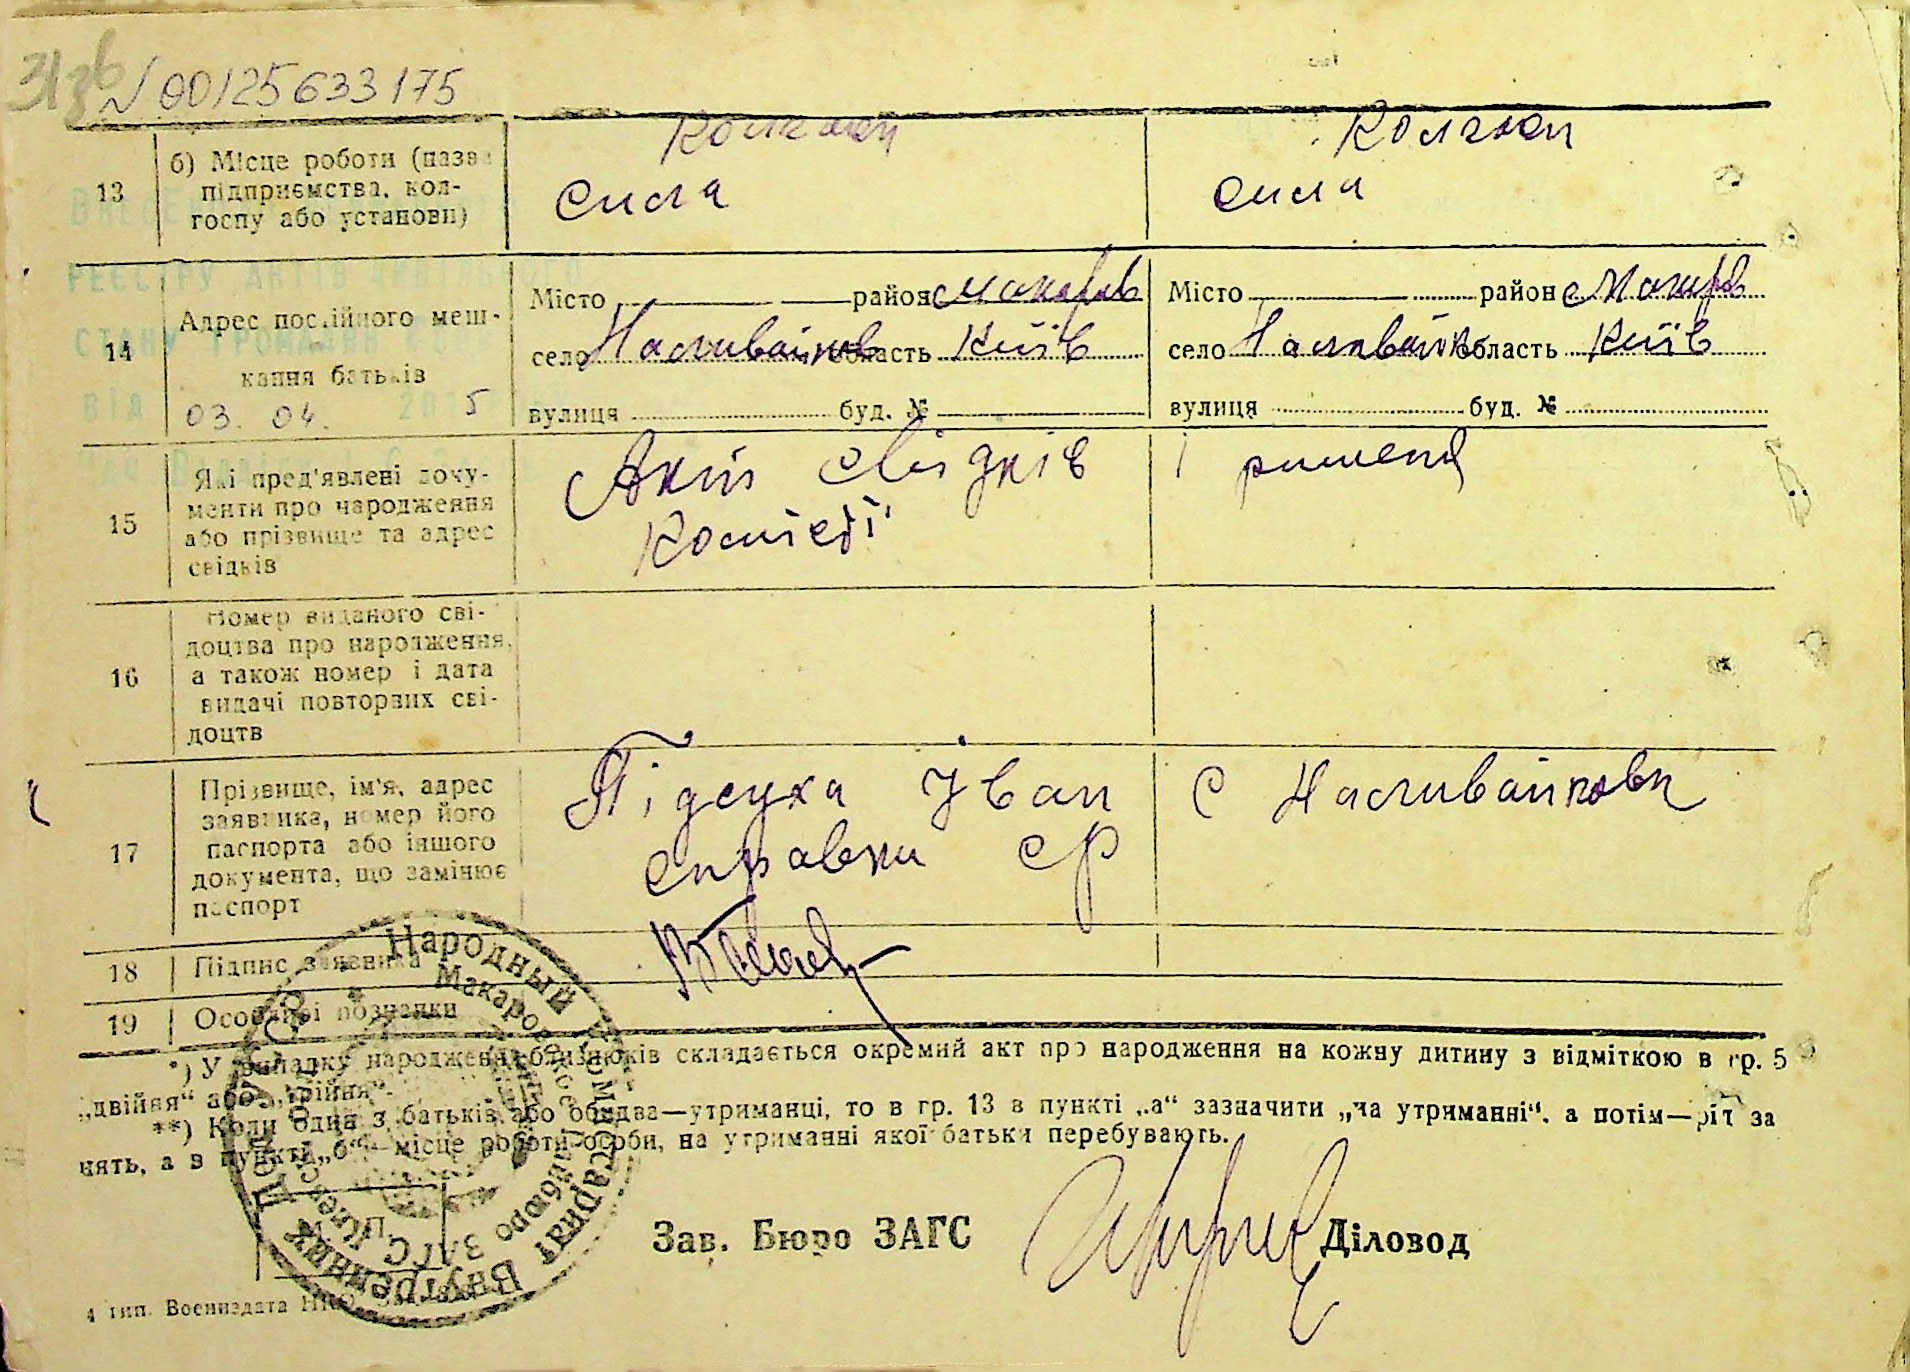 31зв
№ 00125633175
13
б) Місце роботи (назва підприємства, кол-
госпу або установи)
Колгосп
сила
Колгосп
сила
14
Адрес постійного меш-
кання батьків
ВІД 03. 04. 20 5
Місто район Макарів
село Наливайків область Київ
вулиця буд. №
Місто район Макарів
село Наливайків область Київ
вулиця буд. №
15
Які пред'явлені доку-
менти про народження
або прізвище та адрес
свідків
Акт свідків
Комісії
і рішення
16
Номер виданого сві-
доцтва про народження,
а також номер і дата
видачі повторних сві-
доцтв
17
Прізвище, ім'я, адрес
заявника, номер його
паспорта або іншого
документа, що замінює
паспорт
Підсуха Іван
справки ср
с Наливайковки
18
Підпис заявника
19
Особливі познанки
*) У випадку народження близнюків складається окремий акт про народження на кожну дитину з відміткою в гр. 5
„двійня“ або „трійня“.
**) Коли один з батьків або обидва—утриманці, то в гр. 13 в пункті „а“ зазначити „на утриманні“, а потім—рід за
нять, а в пункті „б“—місце роботи особи, на утриманні якої батьки перебувають.
Народный Комиссариат Внутренних Дел УССР
Макаровское райбюро ЗАГС
М. П.
Зав. Бюро ЗАГС Діловод
4 тип. Воениздата НКО